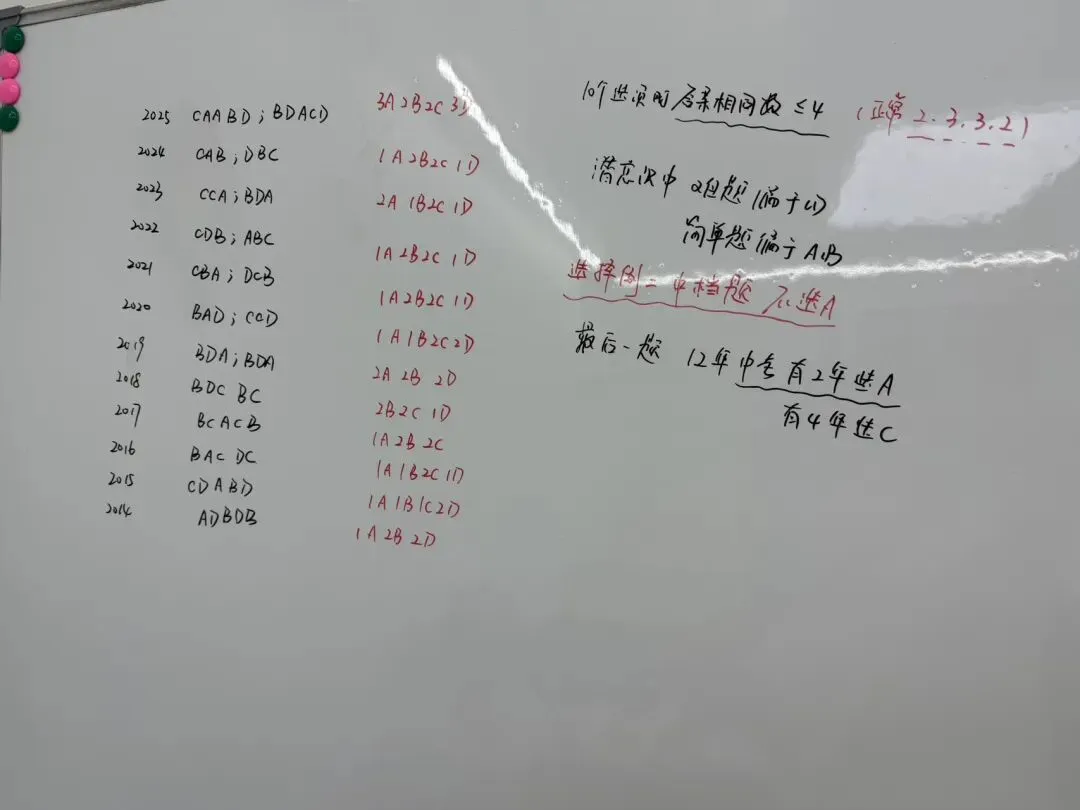 2025 CAABD；BDACD 3A2B2C3D
2024 CAB；DBC 1A2B2C1D
2023 CCA；BDA 2A1B2C1D
2022 CDB；ABC 1A2B2C1D
2021 CBA；DCB 1A2B2C1D
2020 BAD；CCD 1A1B2C2D
2019 BDA；BDA 2A2B2D
2018 BDC BC 2B2C1D
2017 BCACB 1A2B2C
2016 BAC DC 1A1B2C1D
2015 CDABD 1A1B1C2D
2014 ADBDB 1A2B2D
10个选项的答案相同数≤4（正常2.3.3.2）
潜意识中 难题偏于CD
简单题偏于A.B
选择倒二中档题 不选A
最后一题 12年中考有2年选A
有4年选C